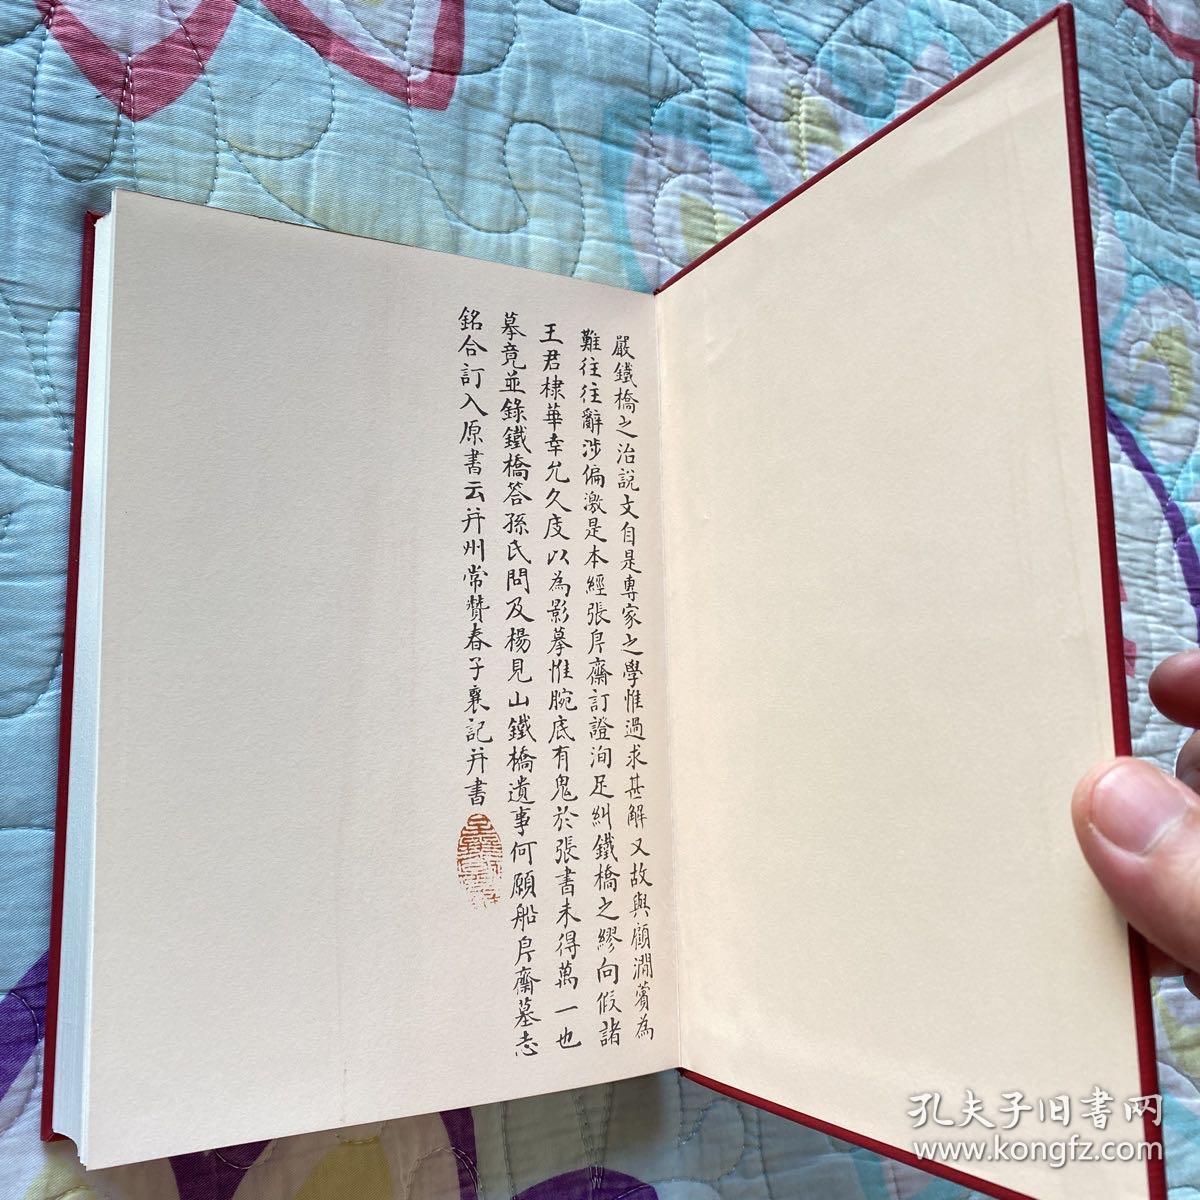 嚴鐵橋之治說文自是專家之學惟過求甚解又故與顧澗薲為
難往往辭涉偏激是本經張㡿齋訂證洵足糾鐵橋之繆向假諸
王君棣華幸允久庋以為影摹惟腕底有鬼於張書未得萬一也
摹竟並錄鐵橋答孫氏問及楊見山鐵橋遺事何願船㡿齋墓志
銘合訂入原書云并州常贊春子襄記并書
孔夫子旧书网
www.kongfz.com